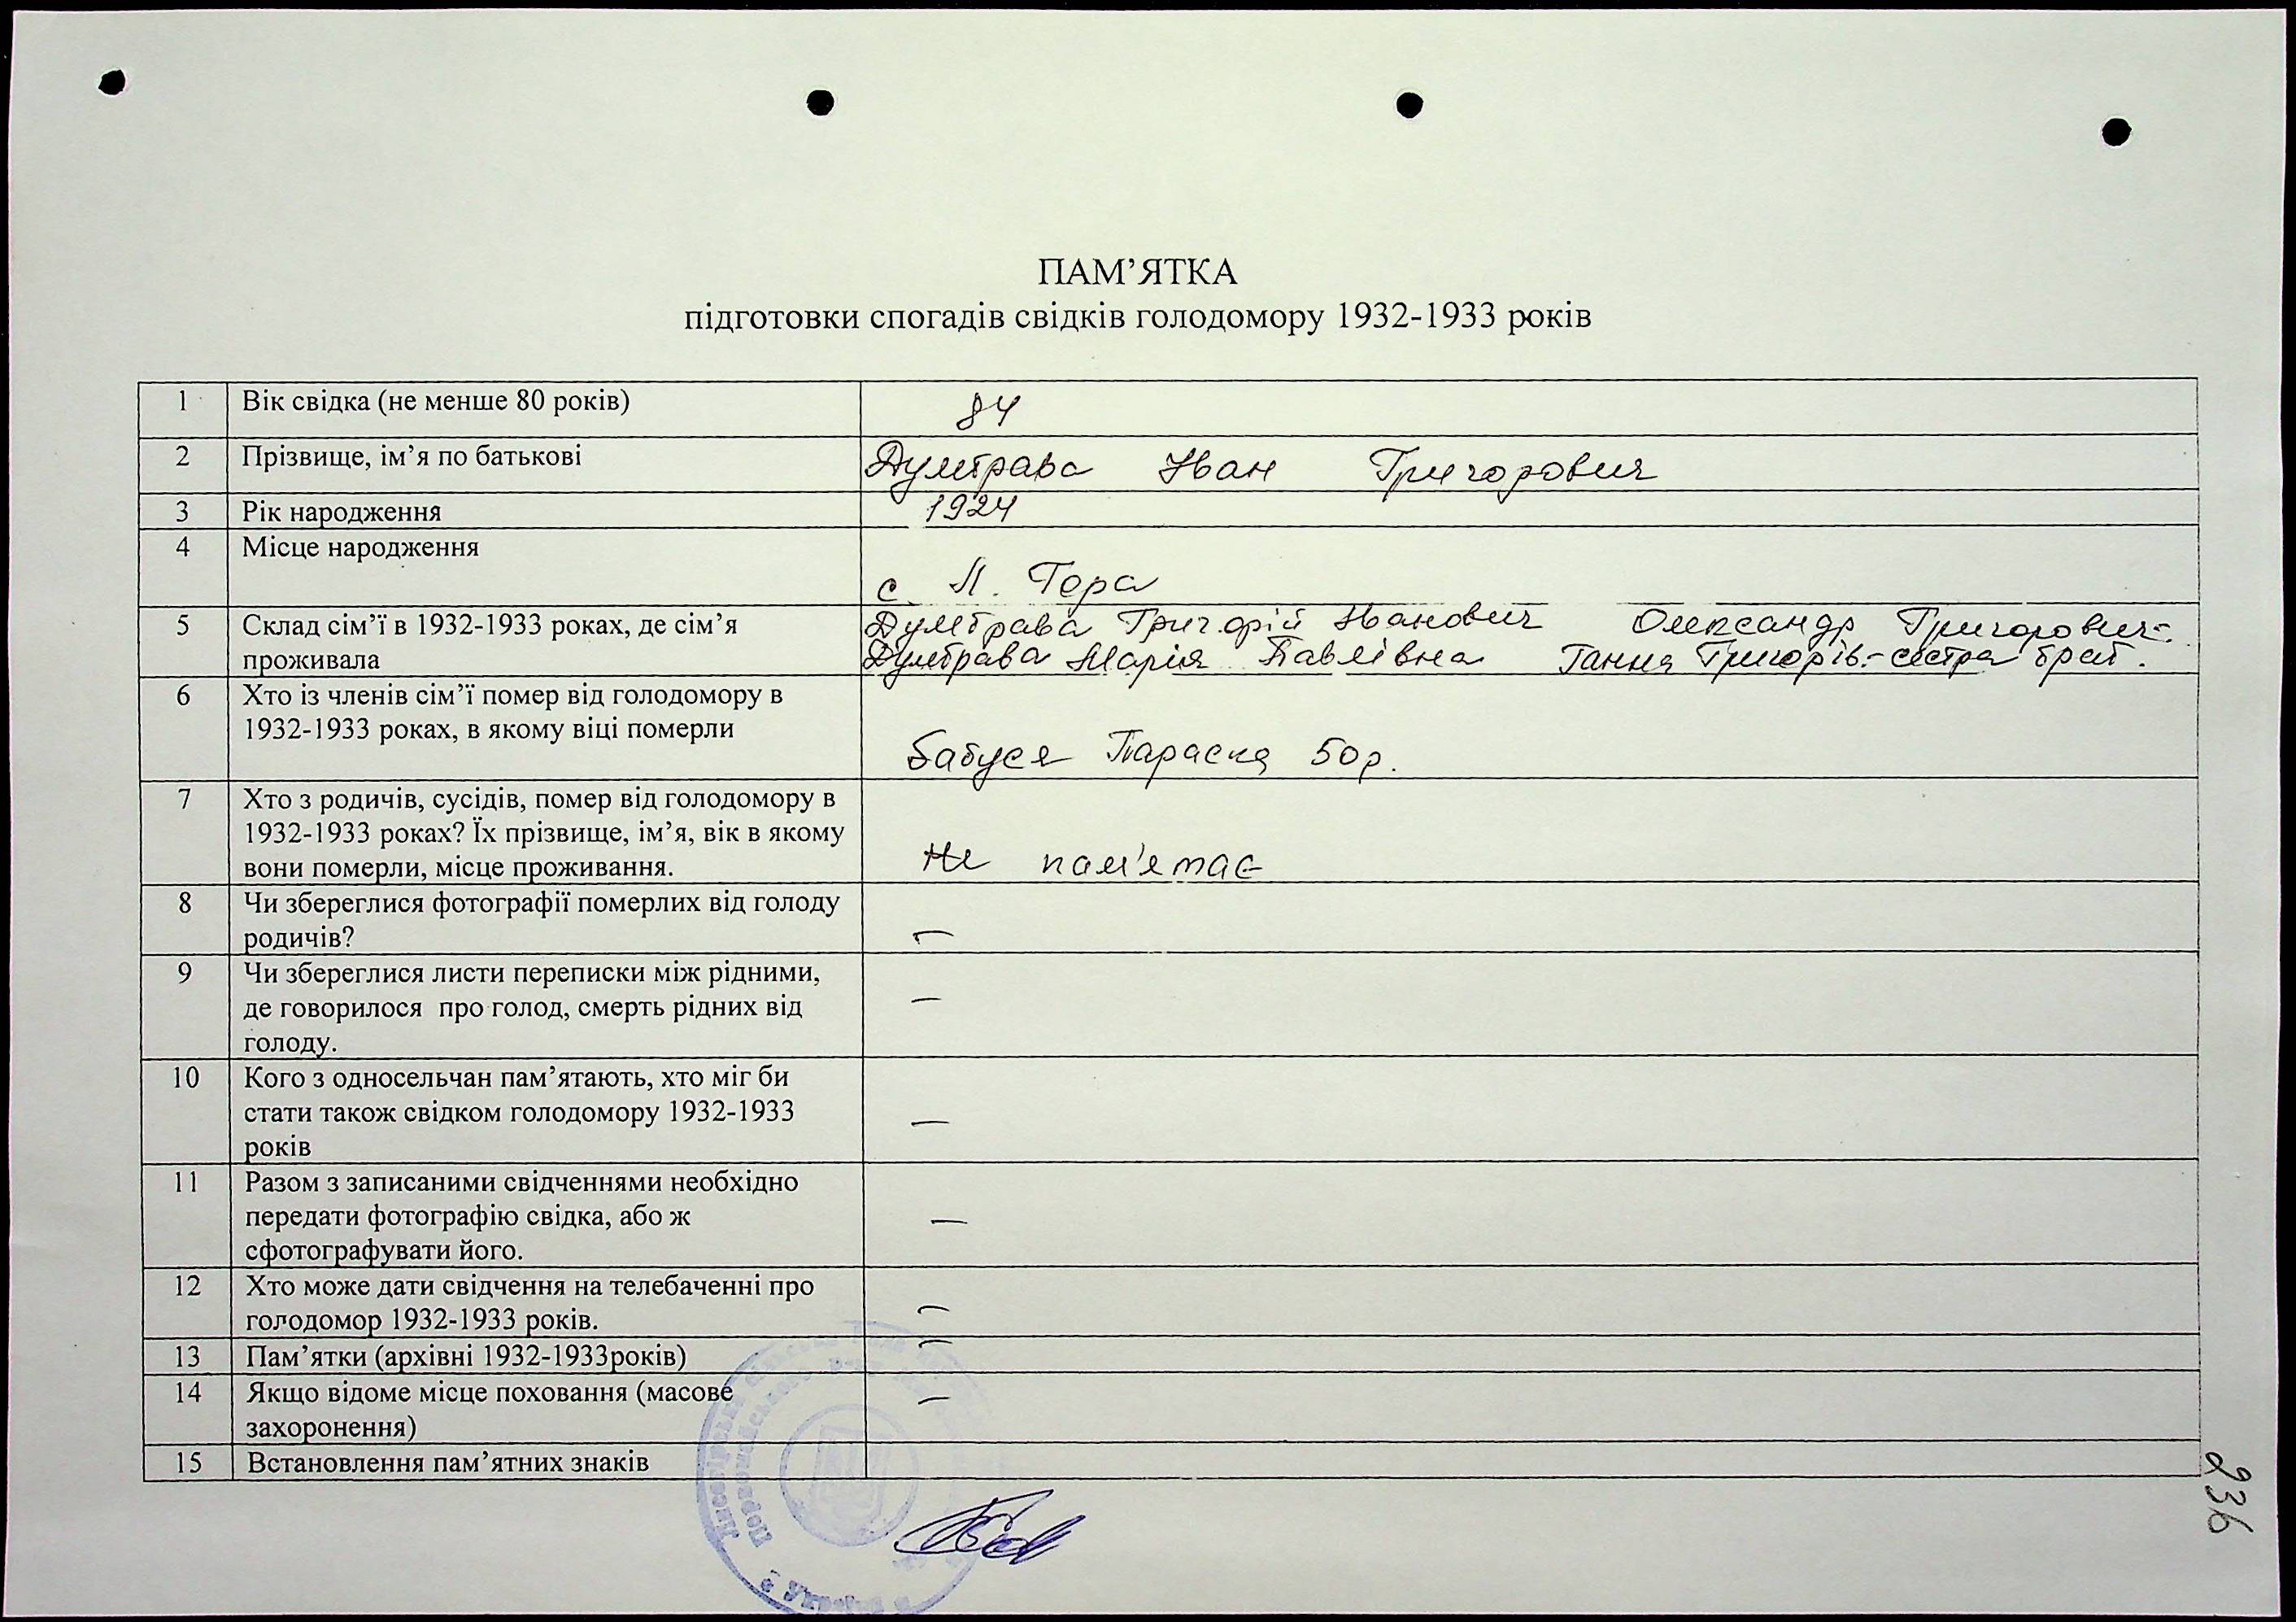 ПАМ’ЯТКА
підготовки спогадів свідків голодомору 1932-1933 років
1 Вік свідка (не менше 80 років) 84
2 Прізвище, ім’я по батькові Думбрава Іван Григорович
3 Рік народження 1924
4 Місце народження
с. Л. Гора
5 Склад сім’ї в 1932-1933 роках, де сім’я Думбрава Григорій Іванович Олександр Григорович-
проживала Думбрава Марія Павлівна Ганна Григорів.- сестра брат.
6 Хто із членів сім’ї помер від голодомору в
1932-1933 роках, в якому віці померли
бабуся Параска 50р.
7 Хто з родичів, сусідів, помер від голодомору в
1932-1933 роках? Їх прізвище, ім’я, вік в якому
вони померли, місце проживання. Не пам'ятає
8 Чи збереглися фотографії померлих від голоду
родичів? —
9 Чи збереглися листи переписки між рідними,
де говорилося про голод, смерть рідних від —
голоду.
10 Кого з односельчан пам’ятають, хто міг би
стати також свідком голодомору 1932-1933 —
років
11 Разом з записаними свідченнями необхідно
передати фотографію свідка, або ж —
сфотографувати його.
12 Хто може дати свідчення на телебаченні про
голодомор 1932-1933 років. —
13 Пам’ятки (архівні 1932-1933років) —
14 Якщо відоме місце поховання (масове —
захоронення)
15 Встановлення пам’ятних знаків
236